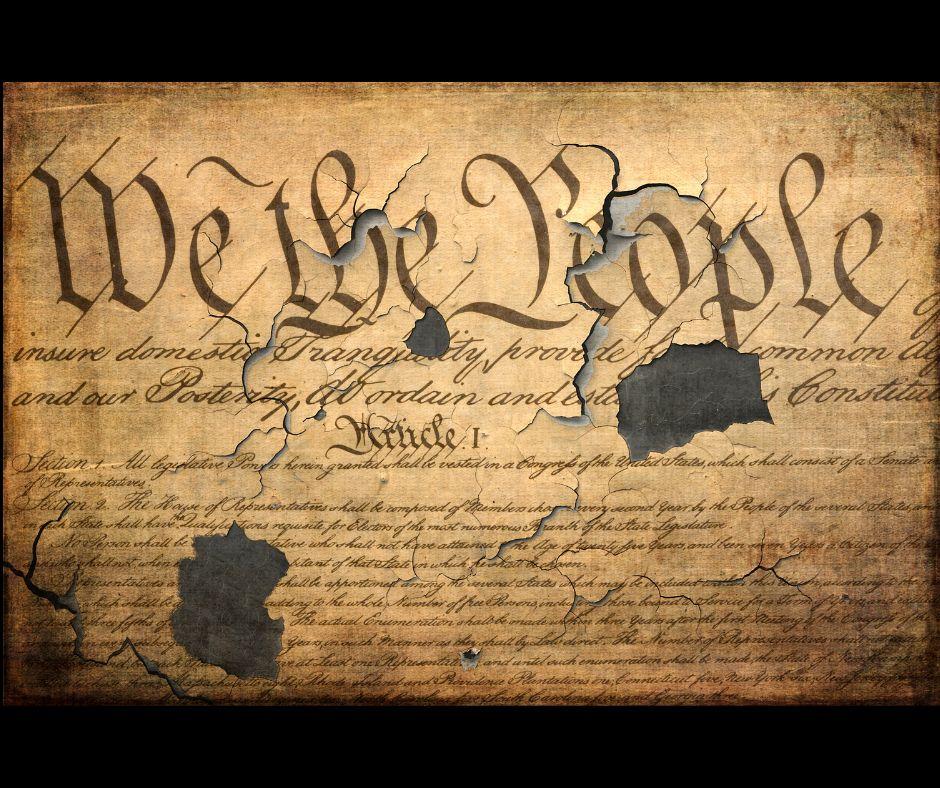 We the People
insure domestic Tranquility, provide common
and our Posterity, do ordain and Constitu
Article. I.
Section. 1. All legislative Powers herein granted shall be vested in a Congress of the United States, which shall consist of a Senate
of Representatives.
Section. 2. The House of Representatives shall be composed of Members every second Year by the People of the several States, and
State shall have the Qualifications requisite for Electors of the most numerous Branch of the State Legislature
No Person shall be who shall not have attained to the Age of twenty five Years, and been seven Years a Citizen of the
who shall not, when of that State in which he shall be
Representatives shall be apportioned among the several States which may be included according to
which shall be adding to the whole Number of free Persons, including those bound to Service for a Term of Years,
three fifths of The actual Enumeration shall be made within three Years after the first Meeting of the Congress of the
Years, in such Manner as they shall by Law direct. The Number of Representatives shall not
at Least one Representative and until such enumeration shall be made, the State of New
Rhode Island and Providence Plantations one, Connecticut five, New York six, New Jersey
five, South Carolina five, and Georgia three.